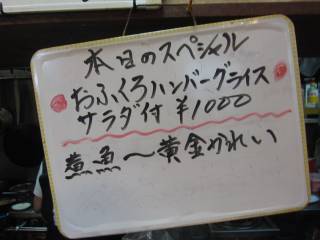 本日のスペシャル
おふくろハンバーグライス
サラダ付 ¥1000
煮魚〜黄金かれい